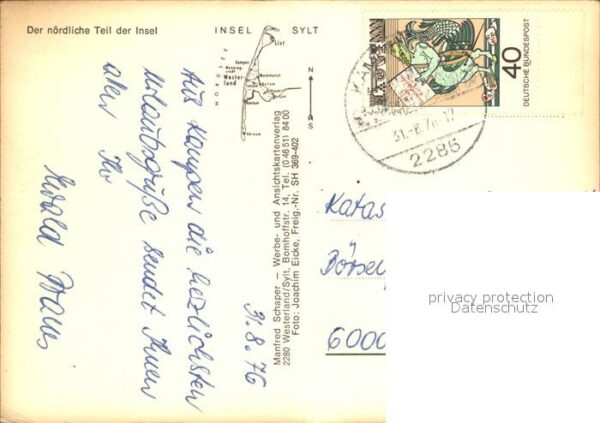 Der nördliche Teil der Insel
INSEL SYLT
List
Kampen
Wester-
land
NORDSEE
N
S
40
DEUTSCHE BUNDESPOST
KAMPEN
31.-8.76
2286
Aus Kampen die herzlichsten
Urlaubsgrüße sendet Ihnen
allen Ihr
31.8.76
Manfred Schaper — Werbe- und Ansichtskartenverlag
2280 Westerland/Sylt, Bomhoffstr. 14, Tel. (0 46 51) 84 00
Foto: Joachim Eicke, Freig.-Nr. SH 369-402
Katas
Börse
6000
privacy protection
Datenschutz